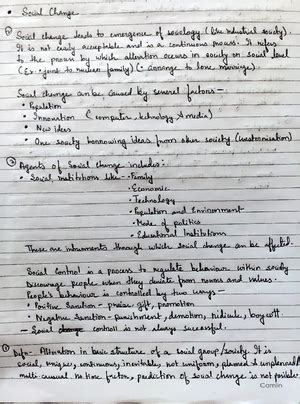 • Social Change
② Social change leads to emergence of sociology (like industrial society).
It is not easily acceptable and is a continuous process. It refers
to the process by which alteration occurs in society on social level
(Ex:- joint to nuclear family) (• arrange to love marriage).
Social changes can be caused by several factors –
• Population
• Innovation (computer, technology & media)
• New ideas
• One society borrowing ideas from other society (westernisation)
③ Agents of Social change includes:
• Social institutions like - • Family
• Economic
• Technology
• Population and Environment
• Mode of politics
• Educational Institutions
These are intruments through which social change can be affected.
Social Control is a process to regulate behaviour within society
Discourage people when they deviate from norms and values.
People's behaviour is controlled by two ways -
• Positive Sanction - praise, gift, promotion
• Negative Sanction - punishment, demotion, ridicule, boycott.
- Social controll is not always successful.
① Defn - Alteration in basic structure of a social group/society. It is
social, unique, continuous, inevitable, not uniform, planned & unplanned,
multi-causal, time factor, prediction of social change is not possible.